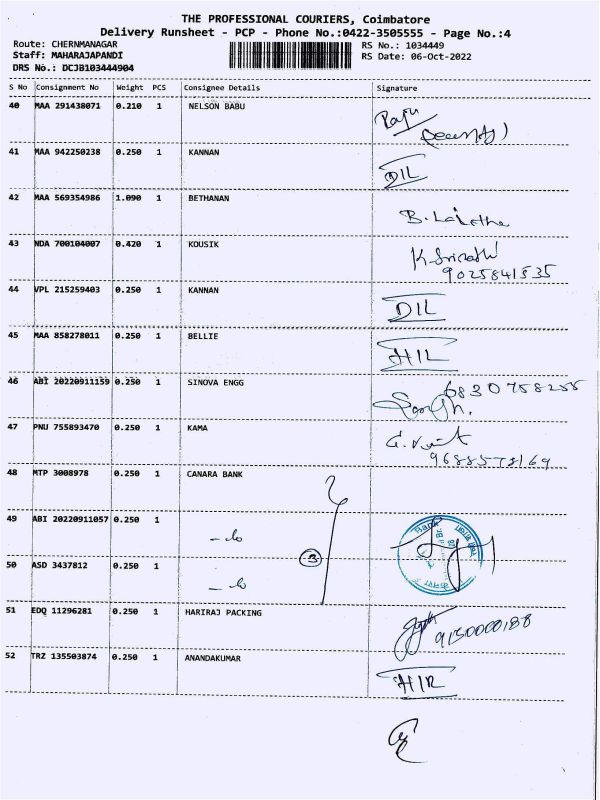 THE PROFESSIONAL COURIERS, Coimbatore
Delivery Runsheet - PCP - Phone No.:0422-3505555 - Page No.:4
Route: CHERNMANAGAR RS No.: 1034449
Staff: MAHARAJAPANDI RS Date: 06-Oct-2022
DRS No.: DCJB103444904
S No Consignment No Weight PCS Consignee Details Signature
40 MAA 291438071 0.210 1 NELSON BABU Raju
(Security)
41 MAA 942250238 0.250 1 KANNAN
DIL
42 MAA 569354986 1.090 1 BETHANAN
B. Lalitha
43 NDA 700104007 0.420 1 KOUSIK
K. Srinath
9025841535
44 VPL 215259403 0.250 1 KANNAN
DIL
45 MAA 858278011 0.250 1 BELLIE
HIL
46 ABI 20220911159 0.250 1 SINOVA ENGG 6830758255
47 PNU 755893470 0.250 1 KAMA
9688578169
48 MTP 3008978 0.250 1 CANARA BANK
49 ABI 20220911057 0.250 1
- do
3
50 ASD 3437812 0.250 1
- do
51 EDQ 11296281 0.250 1 HARIRAJ PACKING
9150000188
52 TRZ 135503874 0.250 1 ANANDAKUMAR
HIR